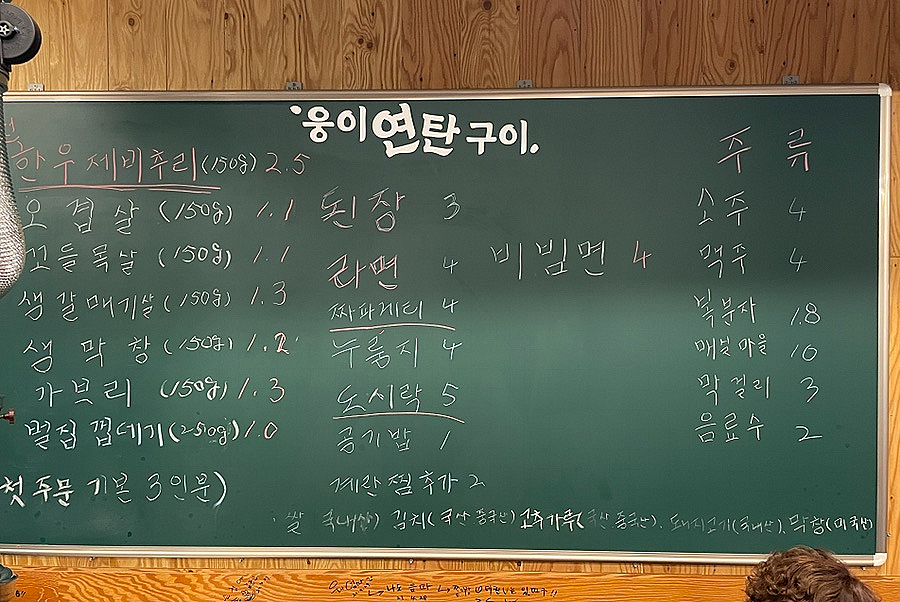 웅이 연탄 구이.
한우 제비추리 (150g) 2.5
오겹살 (150g) 1.1
꼬들목살 (150g) 1.1
생갈매기살 (150g) 1.3
생막창 (150g) 1.2
가브리 (150g) 1.3
멀집껍데기 (250g) 1.0
첫주문 기본 3인분)
된장 3
라면 4
비빔면 4
짜파게티 4
누룽지 4
도시락 5
공기밥 1
계란찜추가 2
주류
소주 4
맥주 4
복분자 1.8
매실마을 10
막걸리 3
음료수 2
쌀 국내산) 김치(국산 중국산) 고추가루(국산 중국산). 돼지고기(국내산), 막창(미국산)